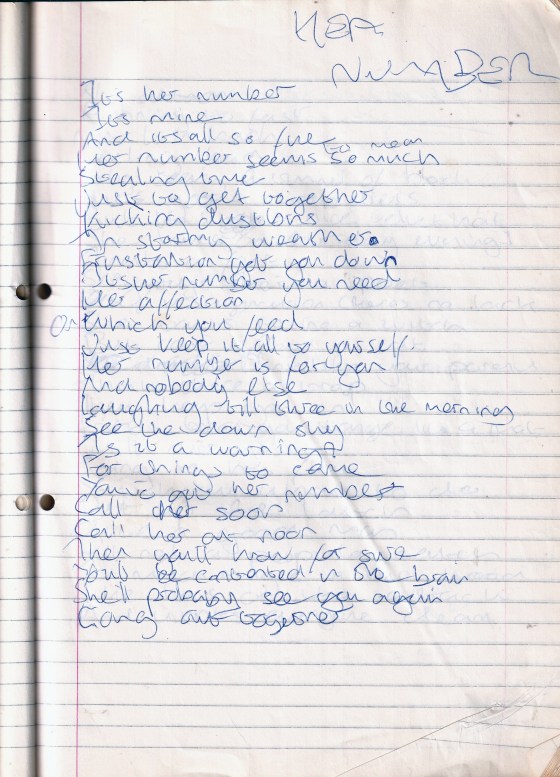 HER
NUMBER
Its her number
Its mine
And its all so fine
to mean
Her number seems so much
Stealing time
Just to get together
Kicking dustbins
In starmy weather
Frustration got you down
Its her number you need
Her affection
On which you feed
Just keep it all to yourself.
Her number is for you
And nobody else
Laughing till three in the morning
See the dawn sky
Is it a warning?
For things to come
You've got her number
Call her soon
Call her at noon
Then you'll know for sure
You'll be contented in the brain
She'll probably see you again
Going out together